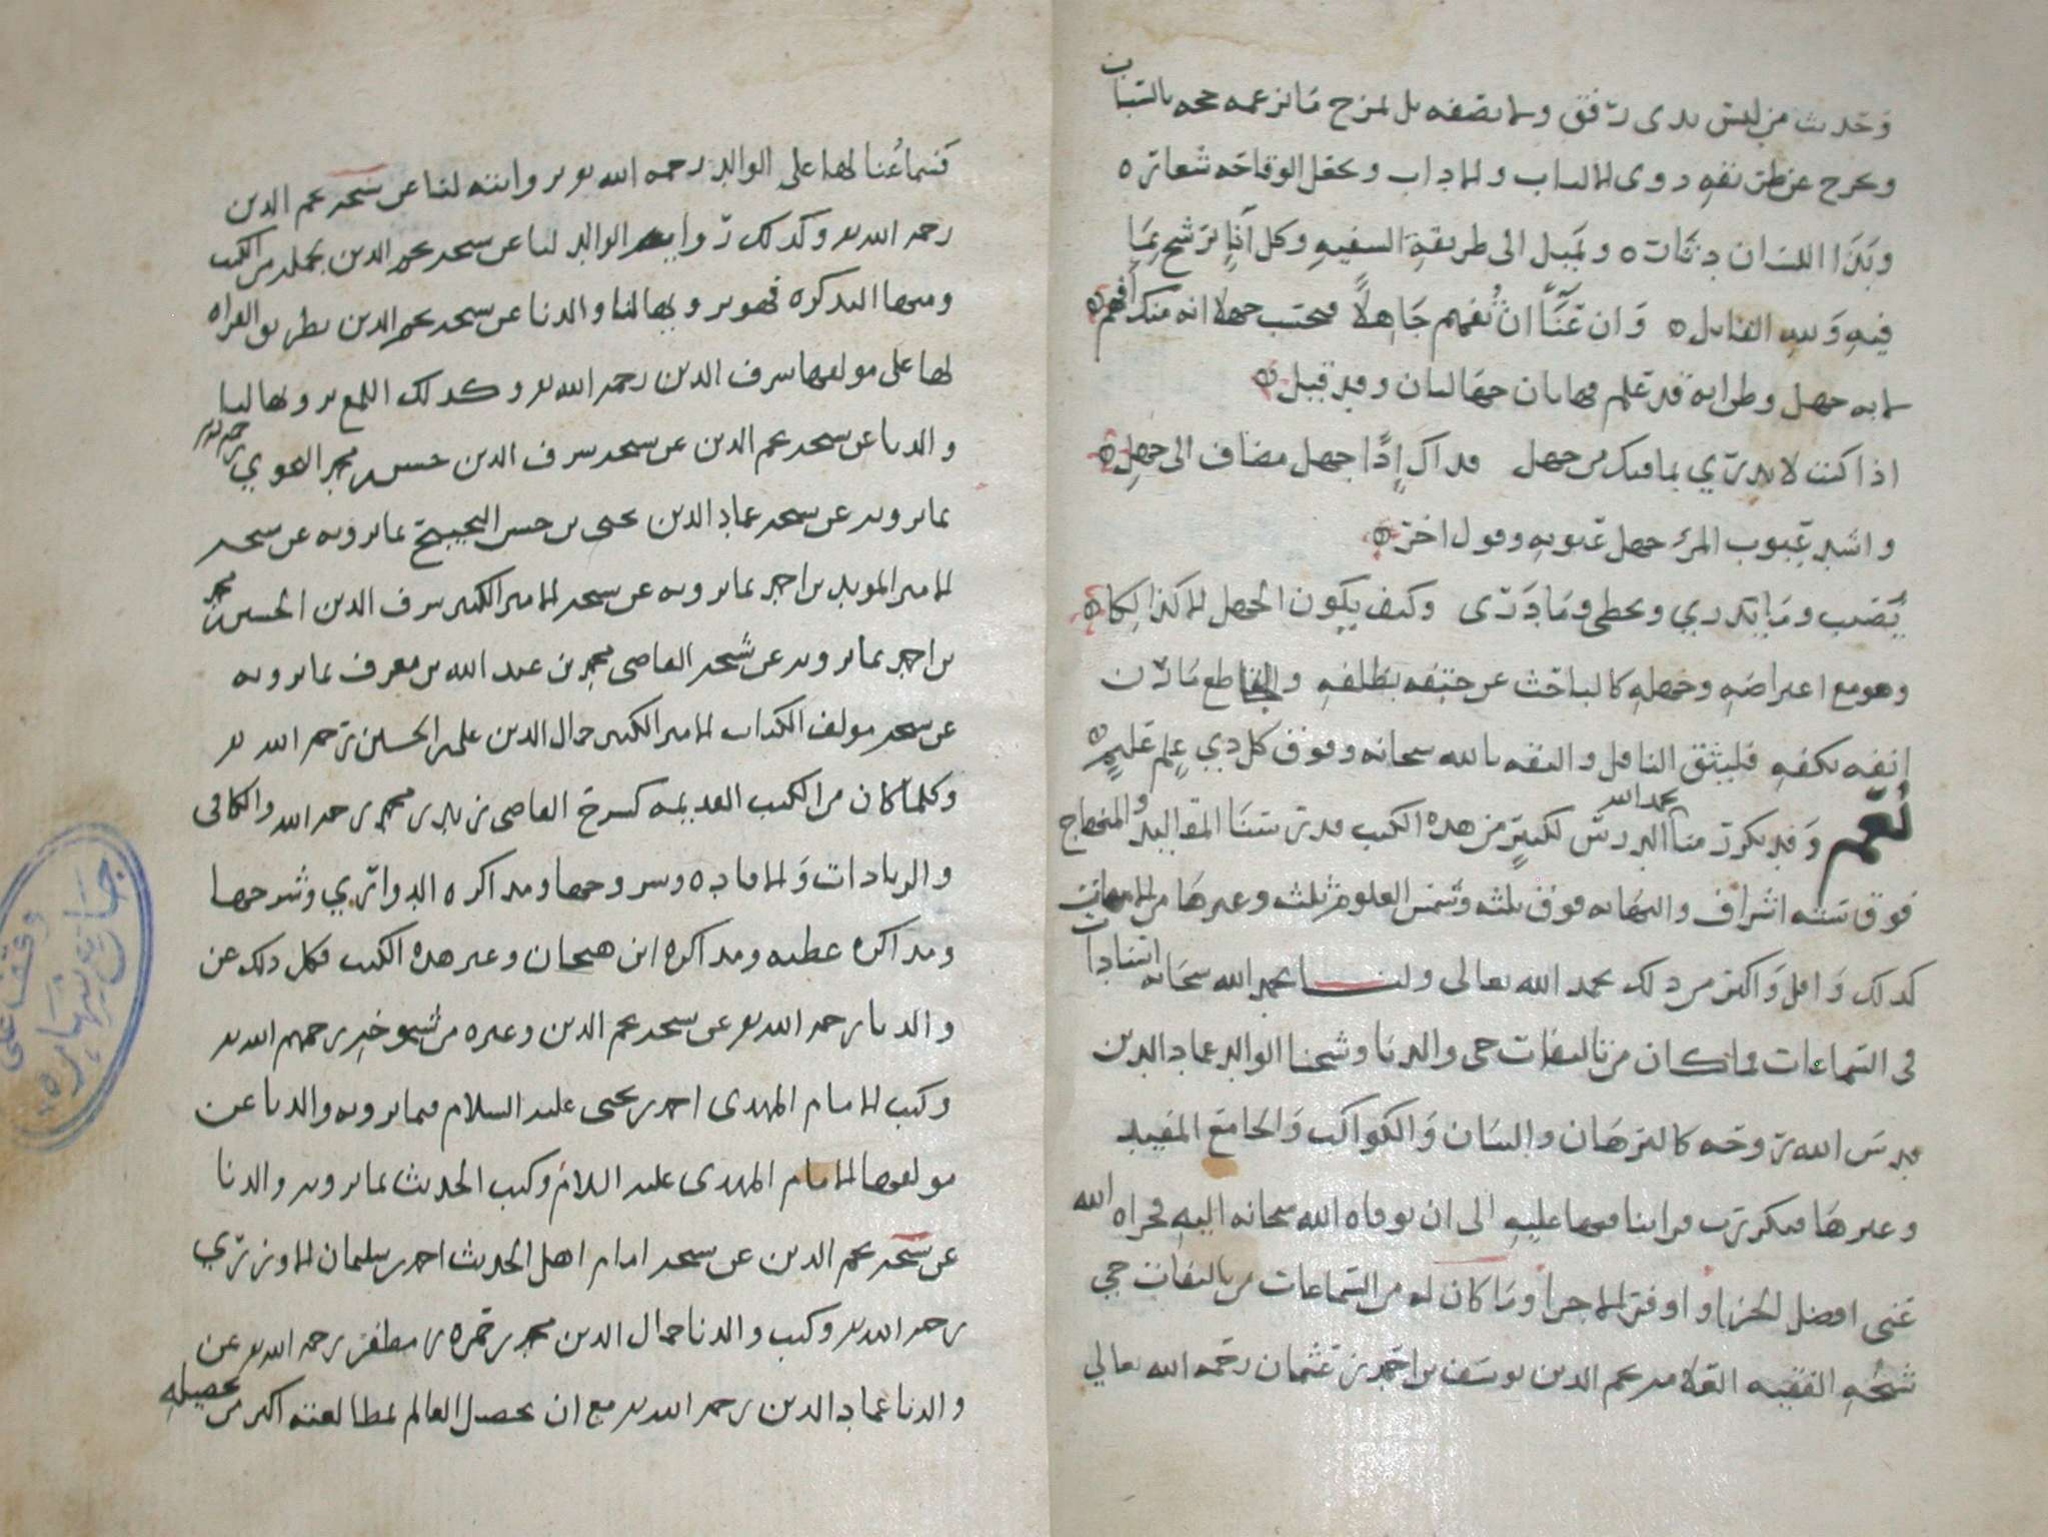 وحديث من ليس بذى رفق ولا بصفه بل لمزح ما نزعمه حجه بالسباب
ويخرج عن طريقه ذوى الالباب والاداب ويجعل الوقاحه شعاره
وبذا اللسان دثاره ويميل الى طريقة السفيه وكل اناءٍ يرشح بما
فيه ولله القايل وان عنآءً ان تُفهم جاهلاً فيحسب جهلا انه منك افهم
لانه جهل وظن انه قد علم فهاتان جهالتان وقد قيل
اذا كنت لا تدري بما فيك من جهل فذاك اِذًا جهل مضاف الى جهلِ
واشد عيوب المرء جهل عيوبه وقول اخر
يُصيب وما يدري ويخطى وما درى وكيف يكون الجهل الا كذالكا
وهو مع اعتراضه وجهله كالباحث عن حتفه بظلفه والقاطع مارن
انفه بكفه فليثق الناقل والثقه بالله سبحانه وفوق كل ذي علم عليم
نعم وقد تكرر منا بحمد الله الدرس لكثيرٍ من هذه الكتب قد درسنا المقاليد والمنهاج
فوق سته اشراف والنهايه فوق ثلثه وشمس العلوم ثلثه وغيرها من الامهات
كذلك واقل واكثر من ذلك بحمد الله تعالى ولنا بحمد الله سبحانه اسنادات
فى السماعات فما كان من تاليفات حى والدنا وشيخنا الوالد عماد الدين
قدس الله روحه كالبرهان والبيان والكواكب والجامع المفيد
وغيرها فتكررت قراتنا فيها عليه الى ان توفاه الله سبحانه اليه فجزاه الله
عنى افضل الجزاء واوفر الاجر وما كان له من السماعات من تاليفات حي
شيخه الفقيه العلامه نجم الدين يوسف بن احمد بن عثمان رحمه الله تعالي
فسماعُنا لها على الوالد رحمه الله تع وروايته لنا عن شيخه نجم الدين
رحمه الله تع وكذلك رواية الوالد لنا عن شيخه نجم الدين بجمله من الكتب
ومنها التذكره فهو يرويها لنا والدنا عن شيخه نجم الدين بطريق القراه
لها على مولفها شرف الدين رحمه الله تع وكذلك اللمع يرويها لنا
والدنا عن شيخه نجم الدين عن شيخه شرف الدين حسن بن محمد النحوي رحمه الله
بما يرويه عن شيخه عماد الدين يحيى بن حسن البحيبح بما يرويه عن شيخه
الامير المويد بن احمد بما يرويه عن شيخه الامير الكبير شرف الدين الحسين بن محمد
بن احمد بما يرويه عن شيخه القاضى محمد بن عبد الله بن معرف بما يرويه
عن شيخه مولف الكتاب الامير الكبير جمال الدين على بن الحسين رحمه الله تع
وكلما كان من الكتب القديمه كشرح القاضى زيد بن محمد رحمه الله والكافى
والزيادات والافاده وشروحها ومذاكره الدواري وشرحها
ومذاكره عطيه ومذاكره ابن هيجان وغير هذه الكتب فكل ذلك عن
والدنا رحمه الله تع عن شيخه نجم الدين وغيره من شيوخه رحمهم الله تع
وكتب الامام المهدى احمد بن يحيى عليه السلام فيما يرويه والدنا عن
مولفها الامام المهدى عليه السلام وكتب الحديث بما يرويه والدنا
عن شيخه نجم الدين عن شيخه امام اهل الحديث احمد بن سليمان الاوزري
رحمه الله تع وكتب والدنا جمال الدين محمد بن حمزه بن مظفر رحمه الله تع عن
والدنا عماد الدين رحمه الله تع مع ان تحصل العالم لمطالعته اكثر من تحصيله
وقف على
جامع شهاره